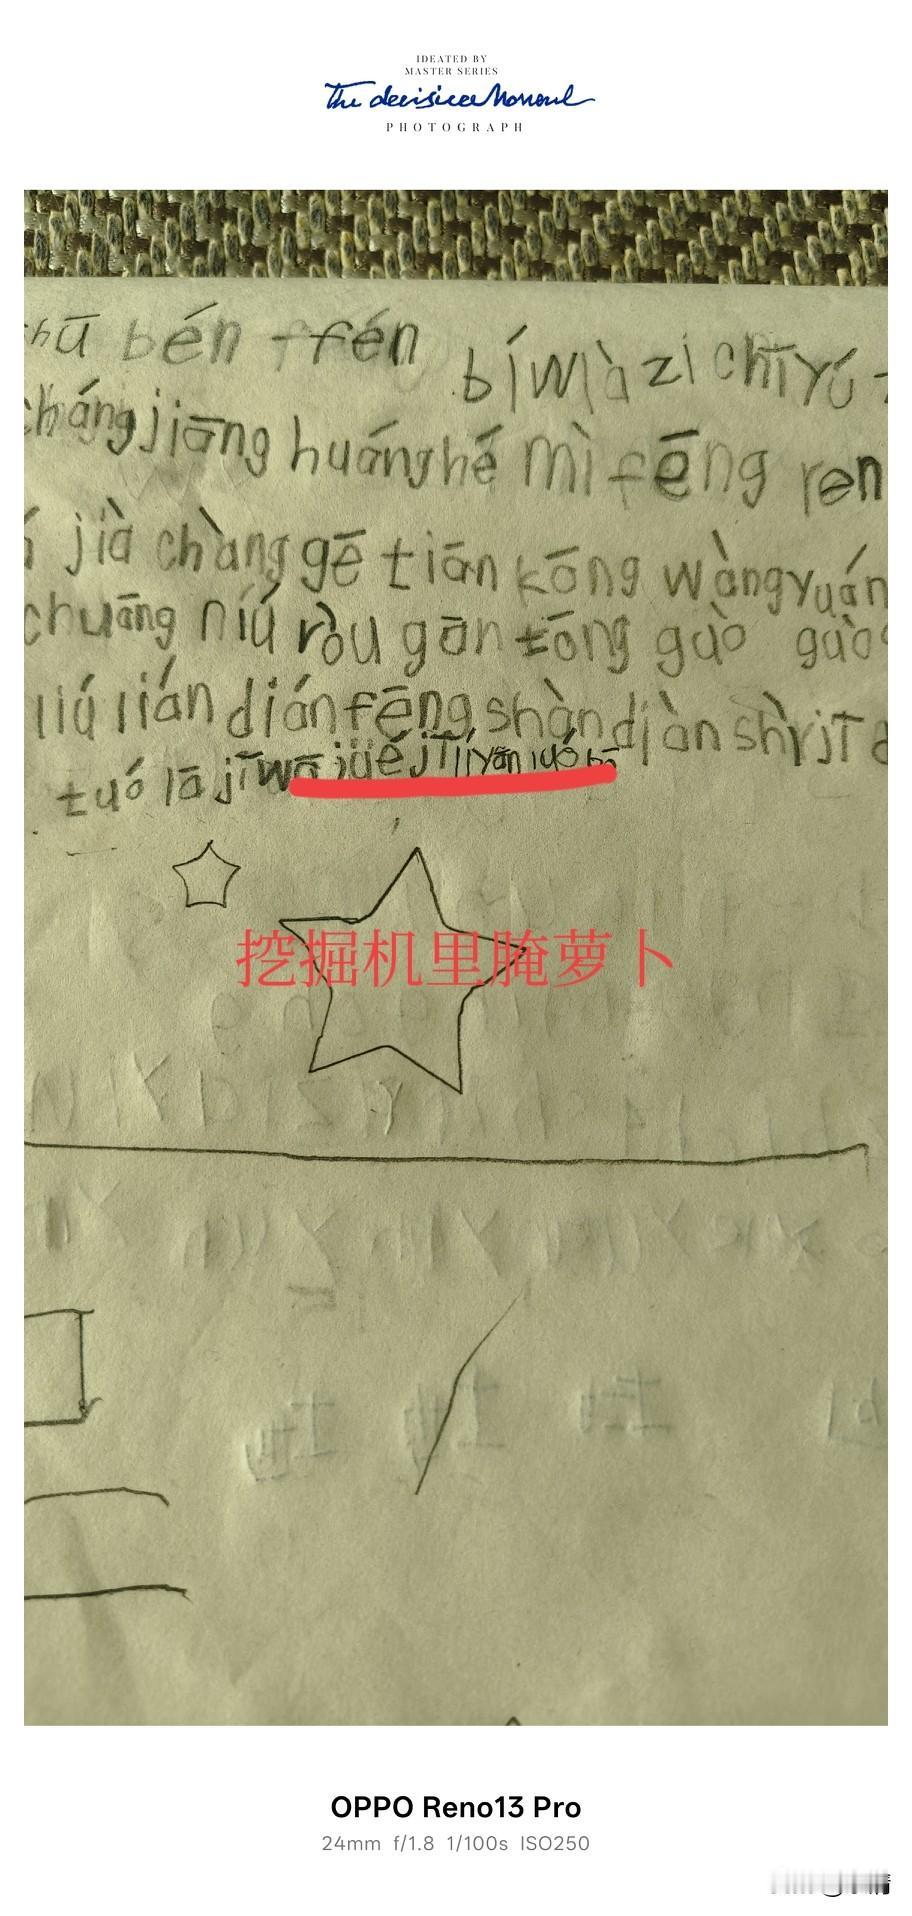 IDEATED BY
MASTER SERIES
The decisive Moment
PHOTOGRAPH
bén fén bí wà zi chī yú
cháng jiāng huáng hé mì fēng ren
jià chàng gē tiān kōng wàng yuán
chuāng niú ròu gān tōng gào gào
liú lián dián fēng shàn diàn shì jī
tuó lā jī wā jué jī lǐ yān luó bō
挖掘机里腌萝卜
OPPO Reno13 Pro
24mm f/1.8 1/100s ISO250